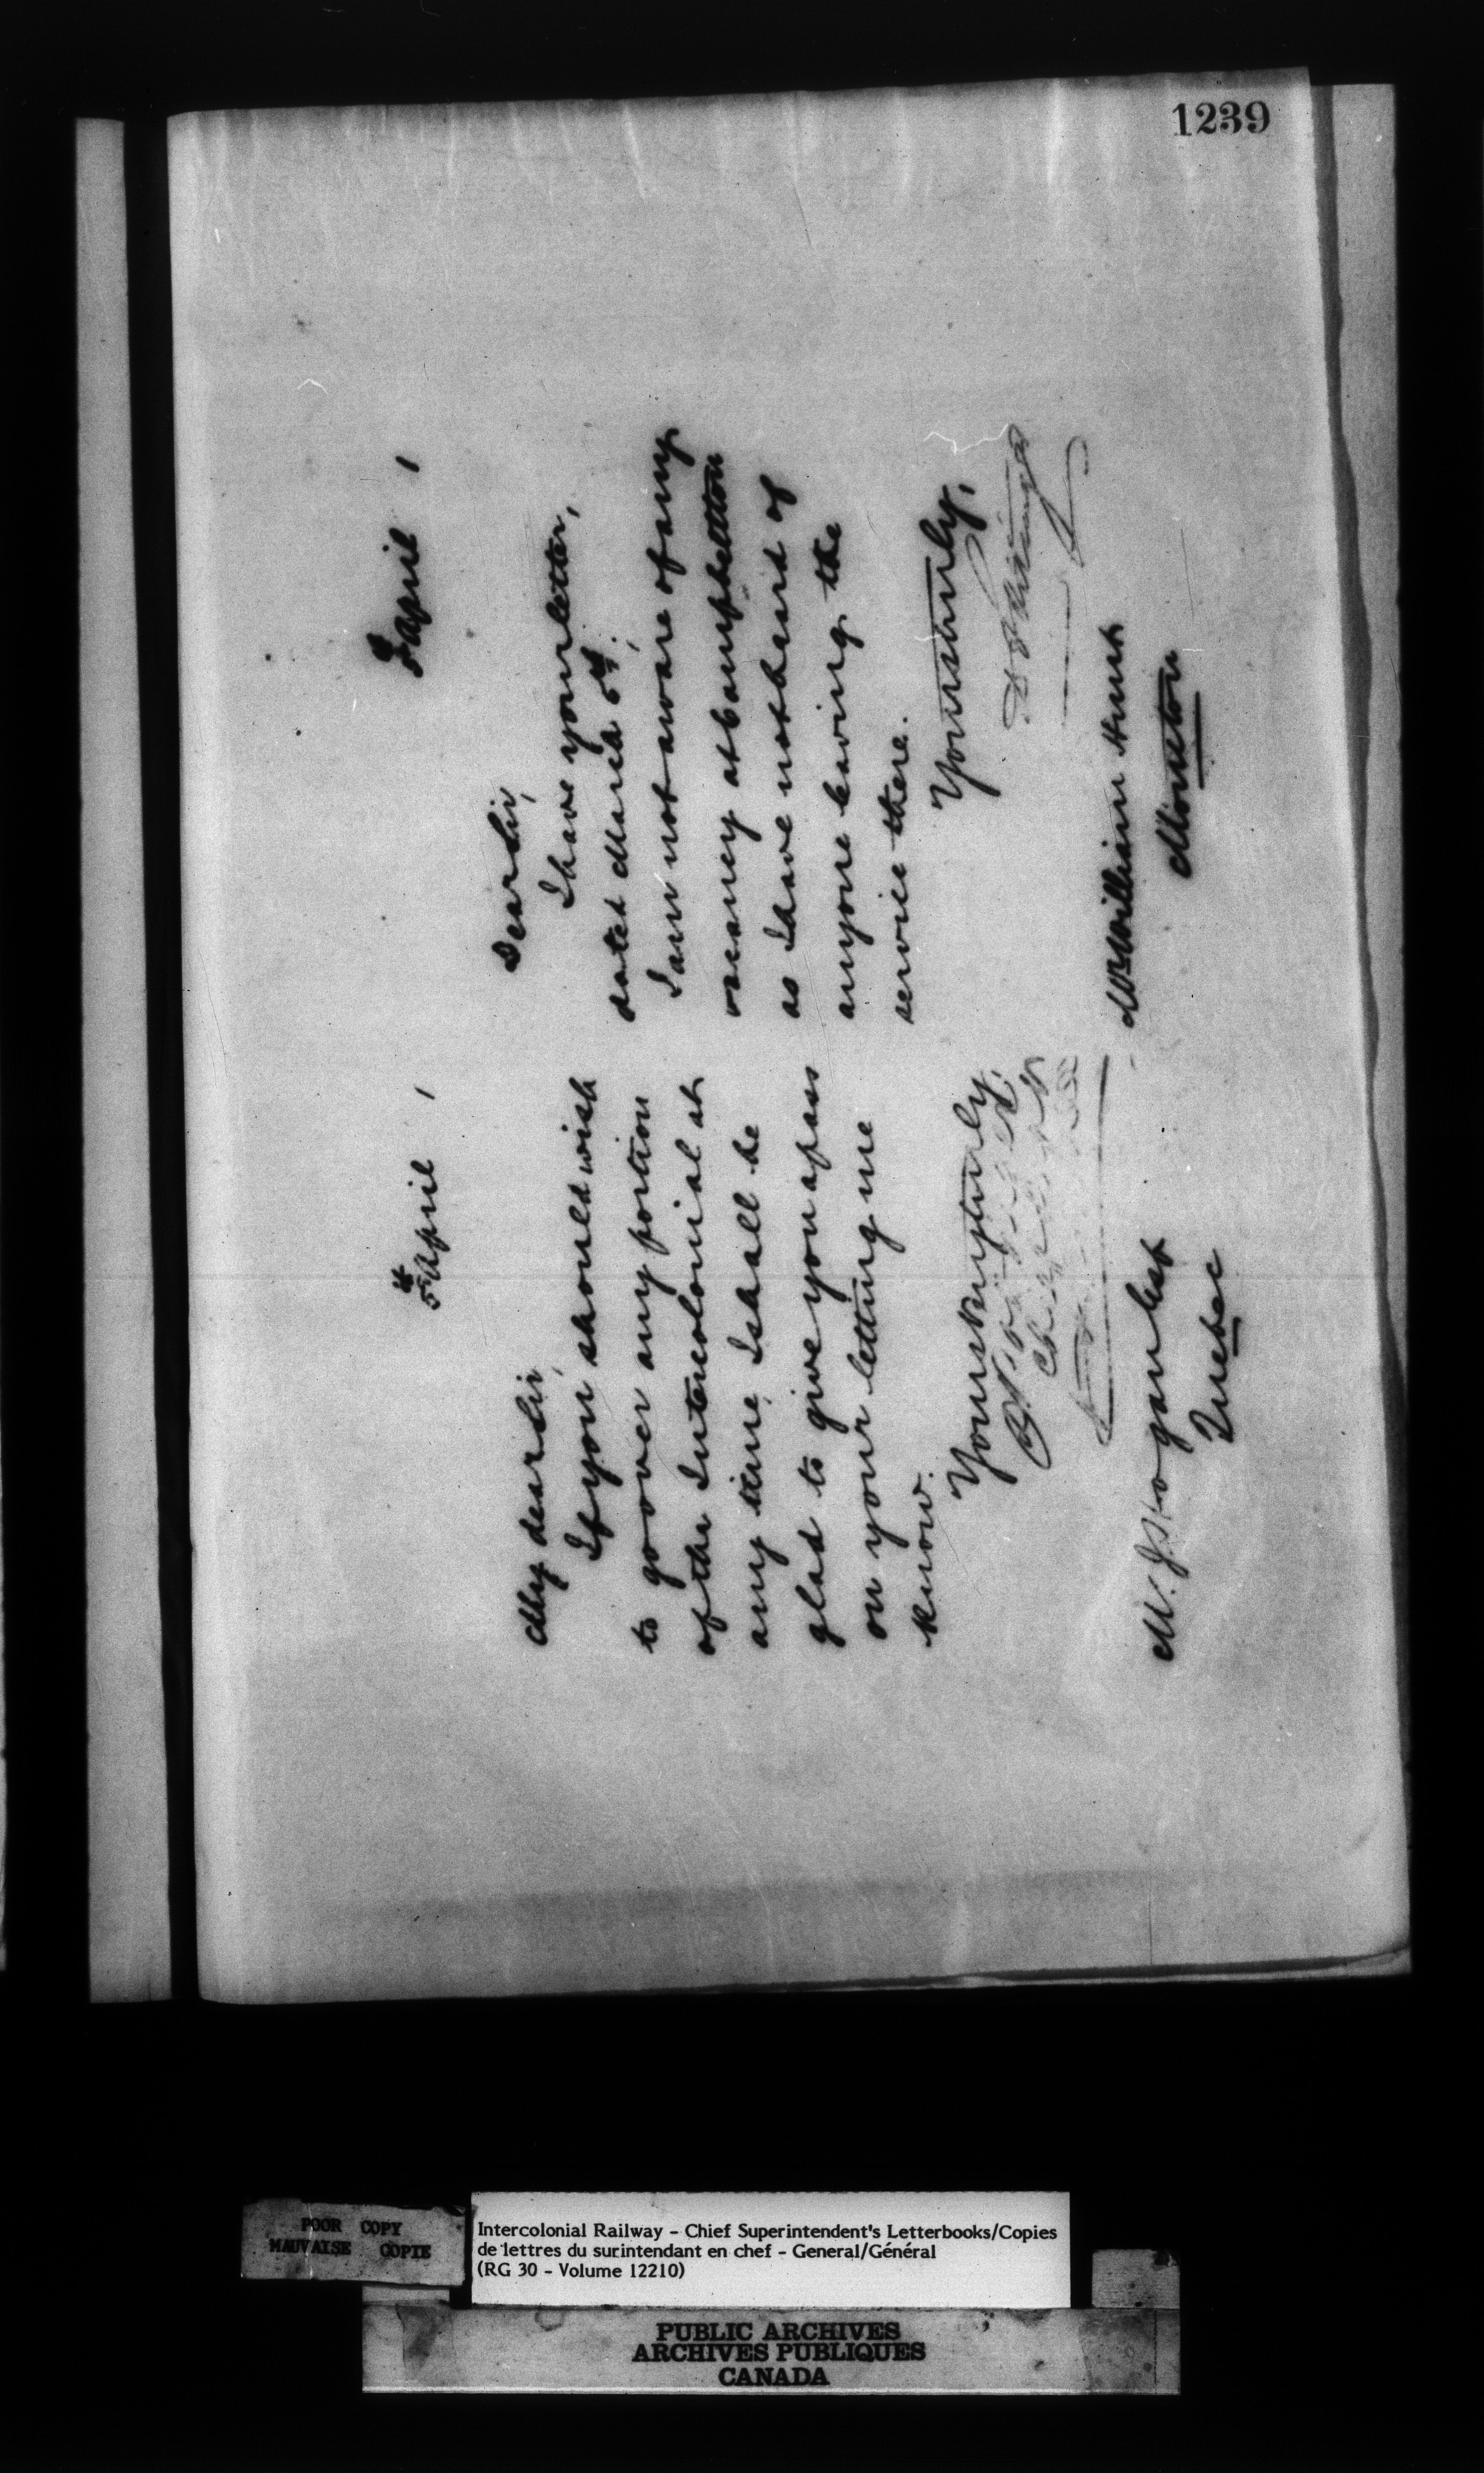 1239
5th April ,
My dear Sir,
If you should wish
to go over any portion
of the Intercolonial at
any time, I shall be
glad to give you a pass
on your letting me
know.
Yours very truly,
M. J. Hogan Esq
Quebec
5th April ,
Dear Sir,
I have your letter,
dated March 5th;
I am not aware of any
vacancy at Campbellton
as I have not heard of
anyone leaving the
service there.
Yours truly,
D Pottinger
Mr William Hunt
Moncton
POOR COPY
MAUVAISE COPIE
Intercolonial Railway - Chief Superintendent's Letterbooks/Copies
de lettres du surintendant en chef - General/Général
(RG 30 - Volume 12210)
PUBLIC ARCHIVES
ARCHIVES PUBLIQUES
CANADA